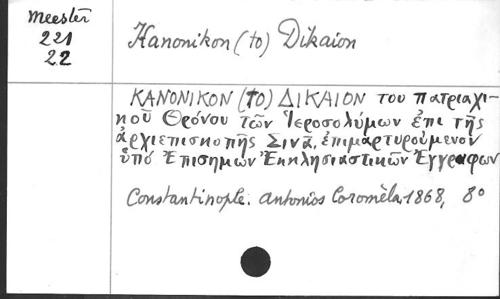 Meester
221
22
Kanonikon (to) Dikaion
ΚΑΝΟΝΙΚΟΝ (ΤΟ) ΔΙΚΑΙΟΝ του πατριαχι-
κοῦ Θρόνου τῶν Ἱεροσολύμων ἐπι τῆς
ἀρχιεπισκοπῆς Σινᾶ, ἐπιμαρτυρούμενον
ὑπό Ἐπισημῶν Ἐκκλησιαστικῶν Ἐγγραφων
Constantinople: Antonios Coromèla, 1868, 8º